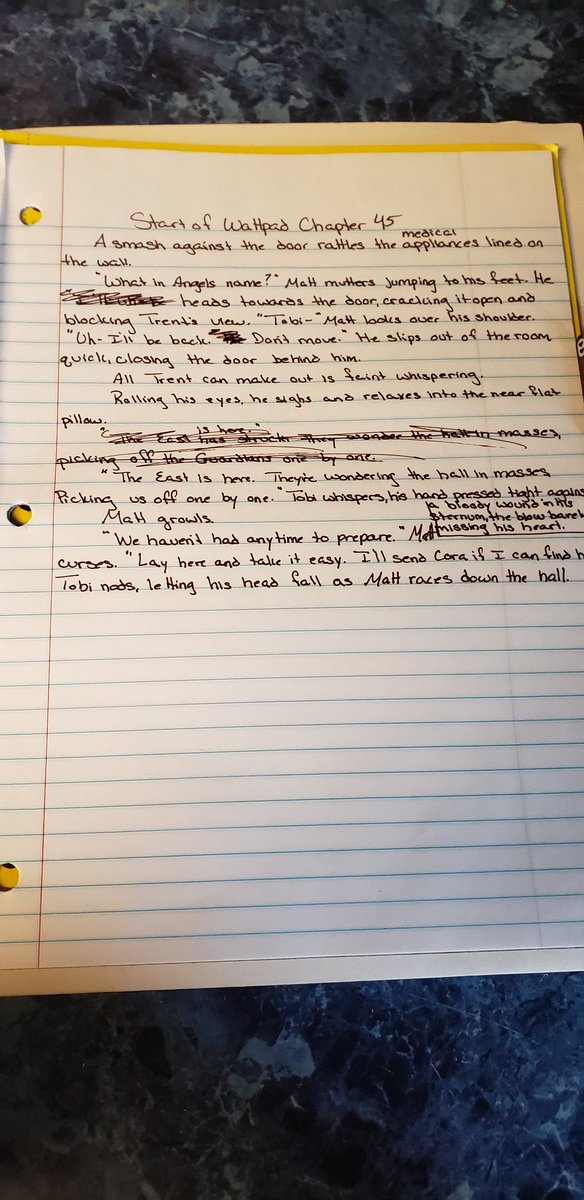 Start of Wattpad Chapter 45
medical
A smash against the door rattles the appliances lined on
the wall.
"What in Angels name?" Matt mutters jumping to his feet. He
heads towards the door, cracking it open and
blocking Trent's view. "Tobi-" Matt looks over his shoulder.
"Uh- I'll be back. Don't move." He slips out of the room
quick, closing the door behind him.
All Trent can make out is faint whispering.
Rolling his eyes, he sighs and relaxes into the near flat
pillow.
is here."
"The East has struck. They wonder the hall in masses,
picking off the Guardians one by one.
"The East is here. They're wondering the hall in masses,
Picking us off one by one." Tobi whispers, his hand pressed tight agains
a bloody wound in his
sternum, the blow barel
missing his heart.
Matt growls.
"We haven't had anytime to prepare." Matt
curses. "Lay here and take it easy. I'll send Cora if I can find h
Tobi nods, letting his head fall as Matt races down the hall.